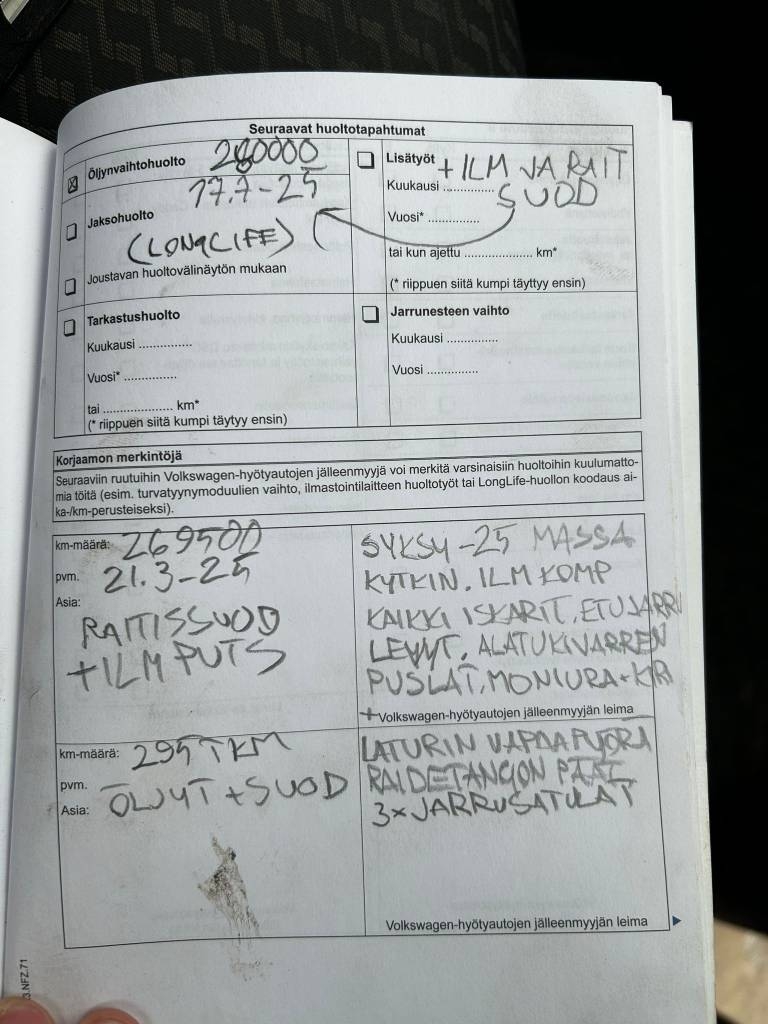 Seuraavat huoltotapahtumat
Öljynvaihtohuolto 280000
17.7-25
Jaksohuolto
(LONGLIFE)
Joustavan huoltovälinäytön mukaan
Lisätyöt + ILM JA RAIT
Kuukausi .............. SUOD
Vuosi* ..............
tai kun ajettu ................... km*
(* riippuen siitä kumpi täyttyy ensin)
Tarkastushuolto
Kuukausi ..............
Vuosi* ..............
tai ................... km*
(* riippuen siitä kumpi täytyy ensin)
Jarrunesteen vaihto
Kuukausi ..............
Vuosi ..............
Korjaamon merkintöjä
Seuraaviin ruutuihin Volkswagen-hyötyautojen jälleenmyyjä voi merkitä varsinaisiin huoltoihin kuulumatto-
mia töitä (esim. turvatyynymoduulien vaihto, ilmastointilaitteen huoltotyöt tai LongLife-huollon koodaus ai-
ka-/km-perusteiseksi).
km-määrä: 269500
pvm. 21.3-25
Asia:
RAITISSUOD
+ILM PUTS
SYKSY -25 MASSA
KYTKIN, ILM KOMP
KAIKKI ISKARIT, ETUJARRU
LEVYT, ALATUKIVARREN
PUSLAT, MONIURA+KIR
+Volkswagen-hyötyautojen jälleenmyyjän leima
km-määrä: 295 TKM
pvm.
Asia: ÖLJYT + SUOD
LATURIN VAPAAPYÖRÄ
RAIDETANGON PÄÄT
3x JARRUSATULAT
Volkswagen-hyötyautojen jälleenmyyjän leima
3.NFZ.71